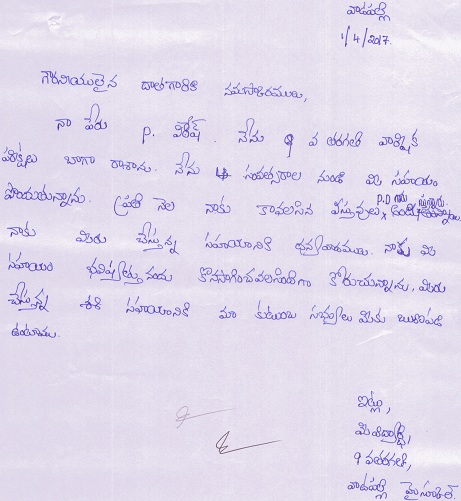 వాడపల్లి
1/4/2017.
గౌరనీయులైన దాతగారికి నమస్కారములు,
నా పేరు P. విరేష్. నేను 9 వ తరగతి వార్షిక
పరిక్షలు బాగా రాశాను. నేను 4 సంవత్సరాల నుండి మీ సహాయం
పొందుతున్నాను. ప్రతి నెల నాకు కావలసిన వస్తువులు P.D గారు ఇస్తున్నారు.
నాకు మీరు చేస్తున్న సహాయానికి ధన్యవాదములు. నాకు మీ
సహాయం భవిష్యత్తు నందు కొనసాగించవలసిందిగా కోరుచున్నాను, మీరు
చేస్తున్న ఈ సహాయానికి మా కుటుంబ సభ్యులు మీకు ఋణపడి
ఉంటాము.
ఇట్లు,
మీ విద్యార్థి,
9 వతరగతి,
వాడపల్లి హైస్కూల్